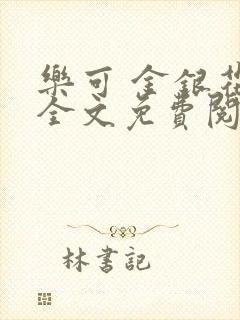 樂可 金銀花
全文免費閱
林書記